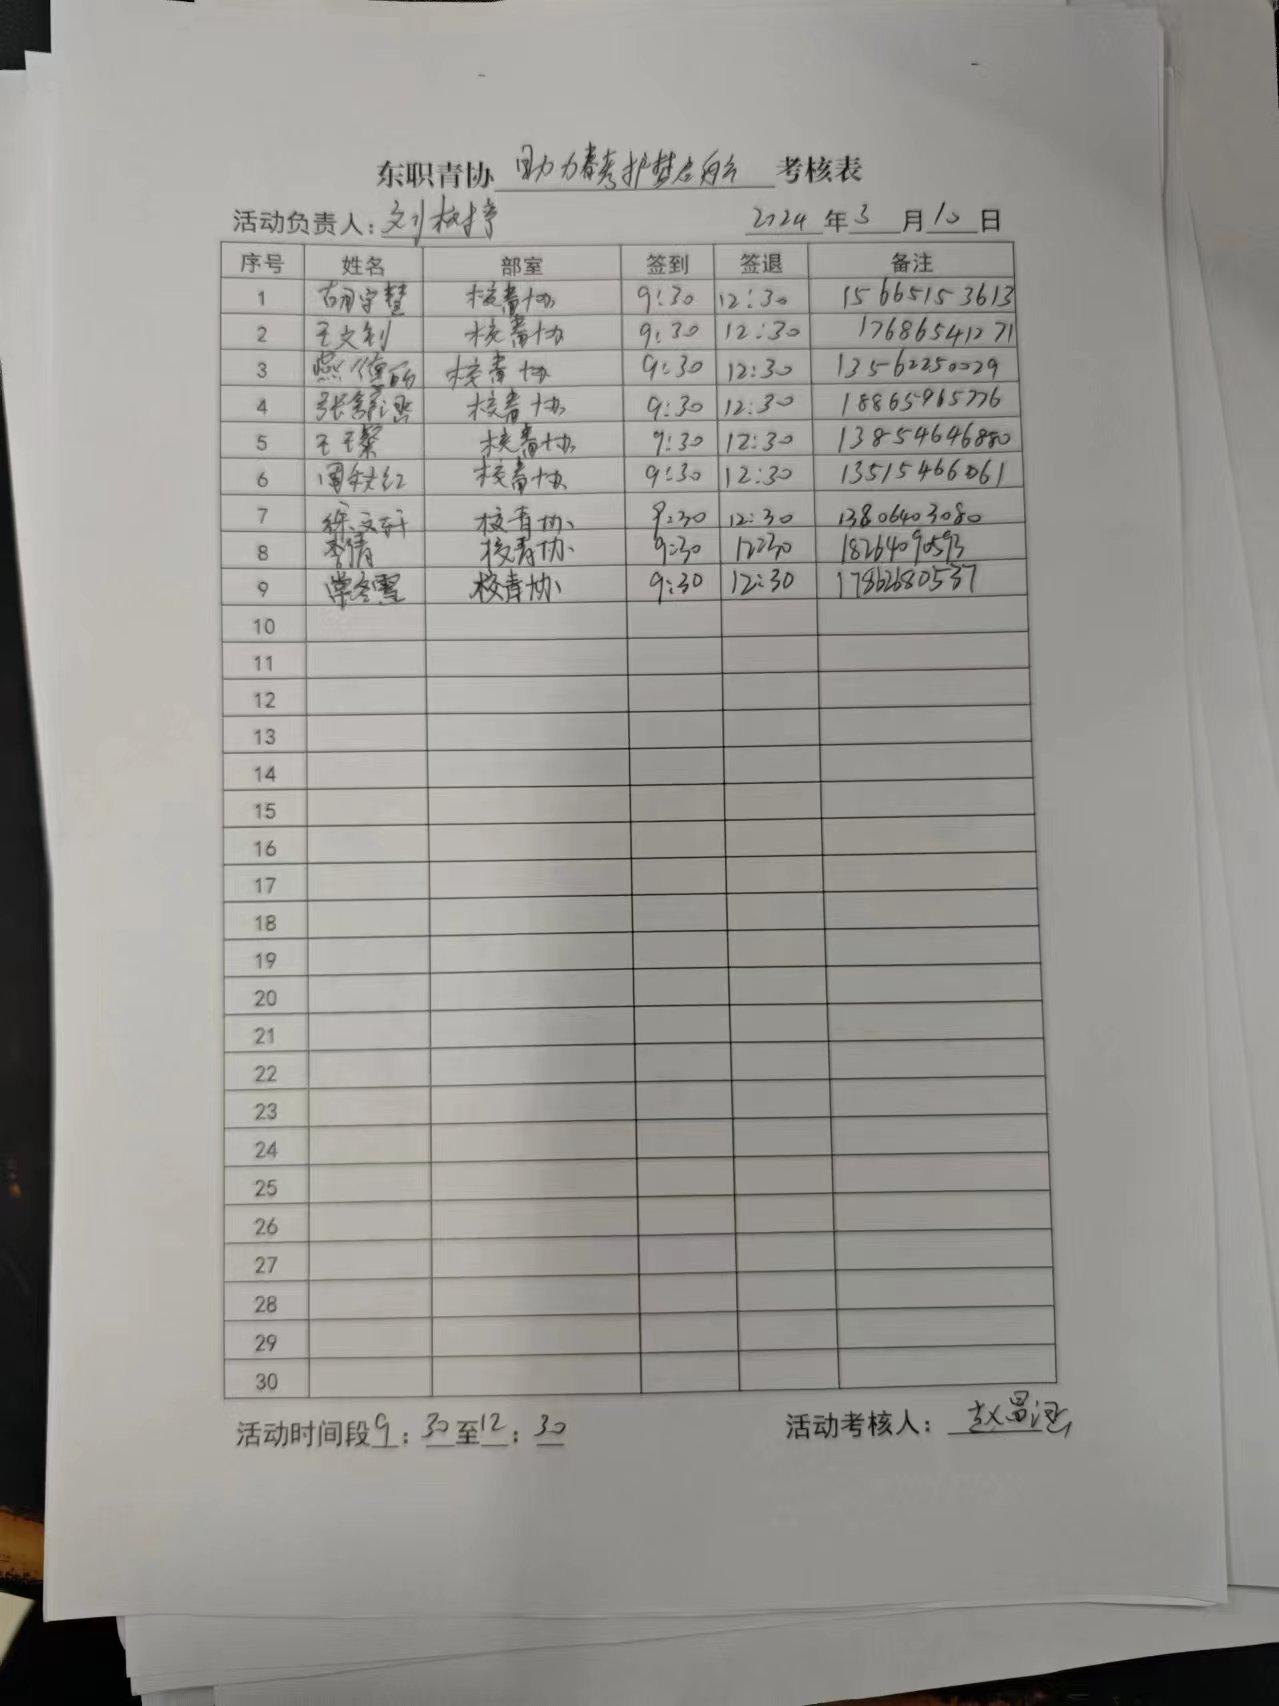 东职青协 助力春考护梦启航 考核表
活动负责人: 刘 2024 年 3 月 10 日
序号 姓名 部室 签到 签退 备注
1 胡宇慧 校青协 9:30 12:30 15665153613
2 王文利 校青协 9:30 12:30 17686541271
3 燕德丽 校青协 9:30 12:30 13562250029
4 张 校青协 9:30 12:30 18865965776
5 王玉馨 校青协 9:30 12:30 13854646880
6 周秋红 校青协 9:30 12:30 13515466061
7 徐文轩 校青协 9:30 12:30 13806403080
8 李倩 校青协 9:30 12:30 18264090593
9 常冬雪 校青协 9:30 12:30 17862680537
10
11
12
13
14
15
16
17
18
19
20
21
22
23
24
25
26
27
28
29
30
活动时间段 9 : 30 至 12 : 30 活动考核人: 赵昌涵